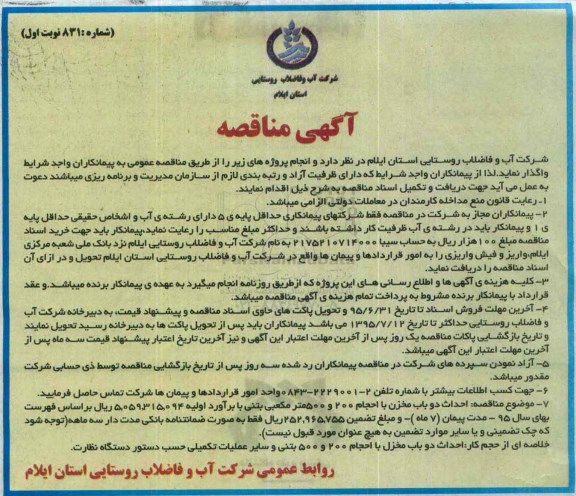 (شماره :۸۳۱ نوبت اول)
شرکت آب وفاضلاب روستایی
استان ایلام
آگهی مناقصه
شرکت آب و فاضلاب روستایی استان ایلام در نظر دارد و انجام پروژه های زیر را از طریق مناقصه عمومی به پیمانکاران واجد شرایط
واگذار نماید.لذا از پیمانکاران واجد شرایط که دارای ظرفیت آزاد و رتبه بندی لازم از سازمان مدیریت و برنامه ریزی میباشند دعوت
به عمل می آید جهت دریافت و تکمیل اسناد مناقصه به شرح ذیل اقدام نمایند.
۱- رعایت قانون منع مداخله کارمندان در معاملات دولتی الزامی میباشد.
۲- پیمانکاران مجاز به شرکت در مناقصه فقط شرکتهای پیمانکاری حداقل پایه ی ۵ دارای رشته ی آب و اشخاص حقیقی حداقل پایه
ی ۱ و پیمانکار باید در رشته ی آب ظرفیت کار داشته باشند و حداکثر مبلغ مناسب را رعایت نماید.پیمانکار باید جهت خرید اسناد
مناقصه مبلغ ۱۰۰هزار ریال به حساب سیبا ۲۱۷۵۲۱۰۷۱۴۰۰۰ به نام شرکت آب و فاضلاب روستایی ایلام نزد بانک ملی شعبه مرکزی
ایلام،واریز و فیش واریزی را به امور قراردادها و پیمان ها واقع در شرکت آب و فاضلاب روستایی استان ایلام تحویل و در ازای آن
اسناد مناقصه را دریافت نماید.
۳- کلیه هزینه ی آگهی ها و اطلاع رسانی های این پروژه که ازطریق روزنامه انجام میگیرد به عهده ی پیمانکار برنده میباشد.و عقد
قرارداد با پیمانکار برنده مشروط به پرداخت تمام هزینه ی آگهی مناقصه میباشد.
۴- آخرین مهلت فروش اسناد تا تاریخ ۹۵/۶/۳۱ و تحویل پاکت های حاوی اسناد مناقصه و پیشنهاد قیمت، به دبیرخانه شرکت آب
و فاضلاب روستایی حداکثر تا تاریخ ۱۳۹۵/۷/۱۲ می باشد پیمانکاران باید پس از تحویل پاکت ها به دبیرخانه رسید تحویل نمایند
و تاریخ بازگشایی پاکات مناقصه یک روز پس از آخرین مهلت اعتبار این آگهی و نیز آخرین تاریخ اعتبار پیشنهاد قیمت سه ماه پس از
آخرین مهلت اعتبار این آگهی میباشد.
۵- آزاد نمودن سپرده های شرکت در مناقصه پیمانکاران رد شده سه روز پس از تاریخ بازگشایی مناقصه توسط ذی حسابی شرکت
مقدور میباشد.
۶- جهت کسب اطلاعات بیشتر با شماره تلفن ۲-۰۸۴۳-۲۲۲۹۰۰۱واحد امور قراردادها و پیمان ها شرکت تماس حاصل فرمایید.
۷- موضوع مناقصه: احداث دو باب مخزن با احجام ۲۰۰ و ۵۰۰متر مکعبی بتنی با برآورد اولیه ۵,۰۵۹,۳۱۵,۰۹۴ ریال براساس فهرست
بهای سال ۹۵ - مدت پیمان (۷ ماه) -و مبلغ تضمین ۲۵۲,۹۶۵,۷۵۵ریال فقط به صورت ضمانتنامه بانکی مدت دار سه ماهه(توجه شود
که چک تضمینی و یا سایر موارد تضمین به هیچ عنوان مورد قبول نیست).
خلاصه ای از حجم کار:احداث دو باب مخزن با احجام ۲۰۰ و ۵۰۰ بتنی و سایر عملیات تکمیلی حسب دستور دستگاه نظارت.
روابط عمومی شرکت آب و فاضلاب روستایی استان ایلام